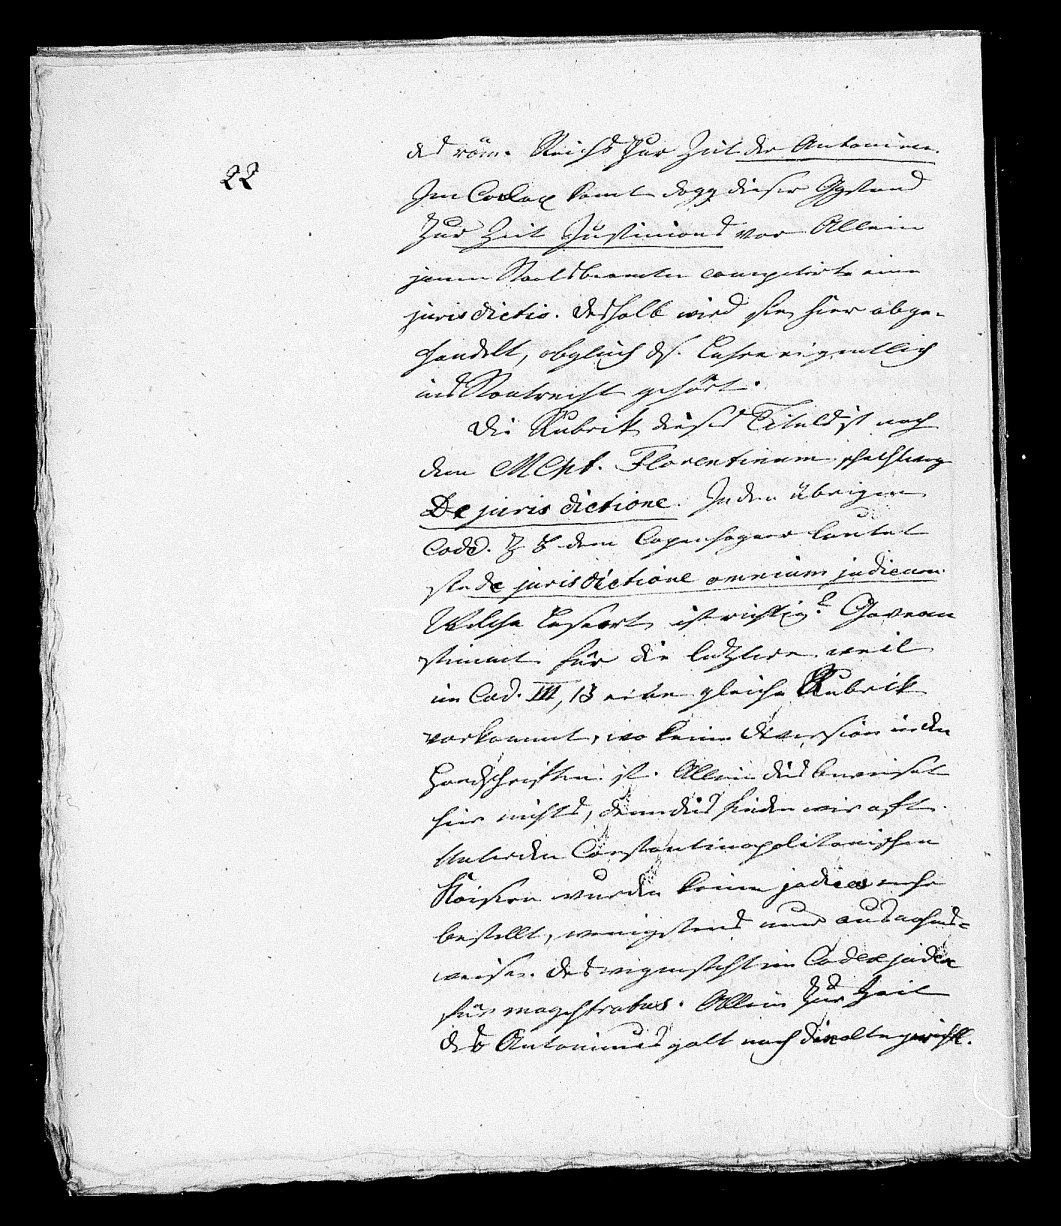 22
des röm. Reichs zur Zeit der Antonine.
Im Codex komt dagg dieser Ggstand
zur Zeit Justinians vor. Allein
jenen Staatsbeamten competirte eine
jurisdictio. deshalb wird sie hier abge-
handelt, obgleich ds. Lehre eigentlich
ins Staatsrecht gehört.
Die Rubrik dieses Titels ist nach
dem MCpt. Florentinum schlechtweg
De jurisdictione. In den übrigen
Codd. z B dem Copenhagner lautet
sie de jurisdictione omnium judicum.
Welche Leseart ist richtig? Govean
stimmt für die letztere, weil
im Cod. III, 13 eine gleiche Rubrik
vorkommt, wo keine diversion in den
Handschriften ist. Allein dies beweiset
hier nichts, denn dies finden wir oft.
Unter den Constantinopolitanischen
Kaisern wurden keine judices mehr
bestellt, wenigstens nur ausnahms-
weise. deswegen steht im Codex judex
für magistratus. Allein zur Zeit
des Antoninus galt noch die alte gerichtl.